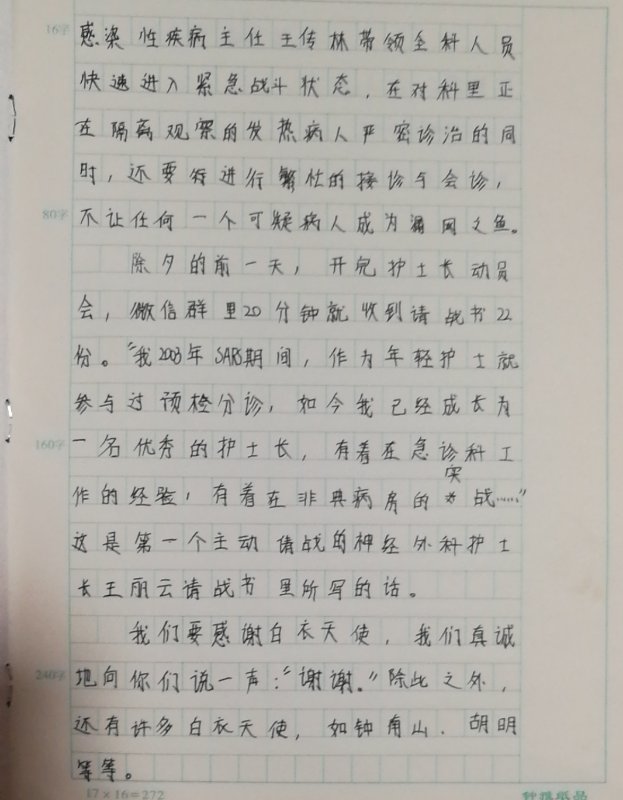 16字
感染性疾病主任王传林带领全科人员
快速进入紧急战斗状态，在对科里正
在隔离观察的发热病人严密诊治的同
时，还要待进行繁忙的接诊与会诊，
80字
不让任何一个可疑病人成为漏网之鱼。
除夕的前一天，开完护士长动员
会，微信群里20分钟就收到请战书22
份。“我2003年SARS期间，作为年轻护士就
参与过预检分诊，如今我已经成长为
160字
一名优秀的护士长，有着在急诊科工
突
作的经验，有着在非典病房的战……”
这是第一个主动请战的神经外科护士
长王丽云请战书里所写的话。
我们要感谢白衣天使，我们真诚
240字
地向你们说一声：“谢谢。”除此之外，
还有许多白衣天使，如钟南山．胡明
等等。
17×16=272